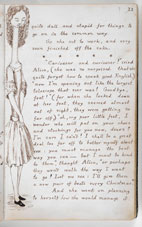 quite dull and stupid for things to
go on in the common way.
So she set to work, and very
soon finished off the cake.
"Curiouser and curiouser!" cried
Alice, (she was so surprised that she
quite forgot how to speak good English,)
"now I'm opening out like the largest
telescope that ever was! Goodbye,
feet!" (for when she looked down
at her feet, they seemed almost
out of sight, they were getting so
far off,) "oh, my poor little feet, I
wonder who will put on your shoes
and stockings for you now, dears?
I'm sure I can't! I shall be a great
deal too far off to bother myself about
you: you must manage the best
way you can: but I must be kind
to them," thought Alice, "or perhaps
they won't walk the way I want
to go! Let me see: I'll give them
a new pair of boots every Christmas."
And she went on planning
to herself how she would manage